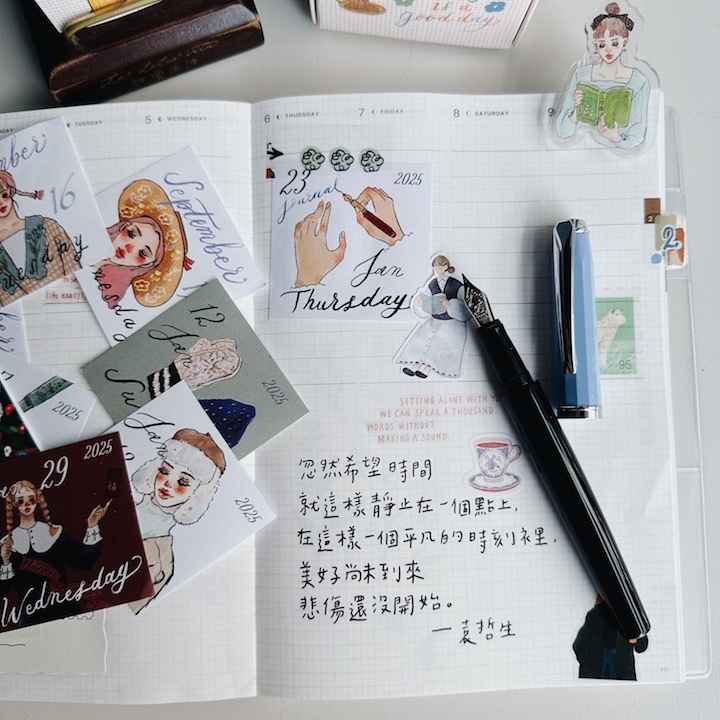 is a
good day
TUESDAY
5 WEDNESDAY
6 THURSDAY
7 FRIDAY
8 SATURDAY
9
16
September
12
Jan
2025
2025
Jan
2025
29
2025
Wednesday
23
2025
Journal
Jan
Thursday
2
2
95
SITTING ALONE WITH
WE CAN SPEAK A THOUSAND
WORDS WITHOUT
MAKING A SOUND.
忽然希望時間
就這樣靜止在一個點上,
在這樣一個平凡的時刻裡,
美好尚未到來
悲傷還沒開始。
—袁哲生